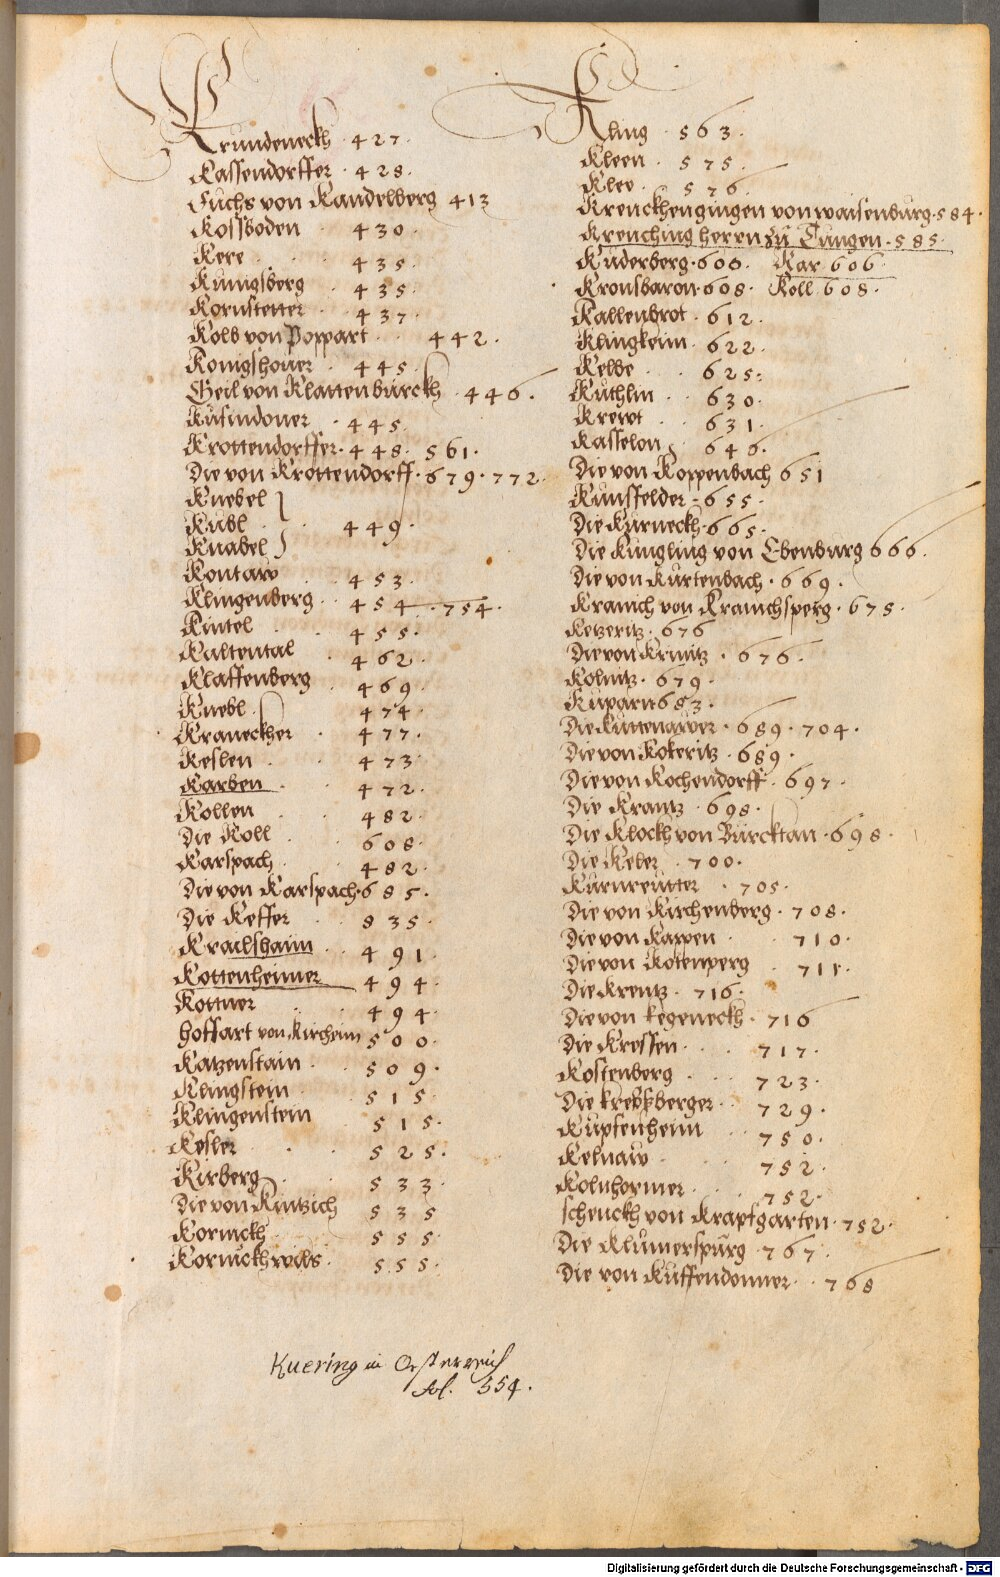 Krundeneckh · 427 ·
Kassendorffer · 428 ·
Fuchs von Kandelberg 413
Kossboden · 430 ·
Kere · 435 ·
Kunigsberg · 435 ·
Kornstetter · 437 ·
Kolb von Poppart · 442 ·
Konigshover · 445 ·
Geil von Klattenburckh · 446 ·
Kusindoner · 445
Krottendorffer · 448 · 561 ·
Die von Krottendorff · 679 · 772
Knebel
Kubl · 449 ·
Knabel
Kontaw · 453 ·
Klingenberg · 454 · 754 ·
Kintel · 455 ·
Kaltental · 462 ·
Klaffenberg · 469 ·
Knebl · 474 ·
Kraneckher · 477 ·
Keslen · 473 ·
Karben · 472 ·
Kollen · 482 ·
Die Koll · 608 ·
Karspach · 482 ·
Die von Karspach · 685 ·
Die Keffer · 835 ·
Krailshaim · 491 ·
Kottenheimer 494 ·
Kottner · 494 ·
Hoffart von Kircheim 500 ·
Katzenstain · 509 ·
Klingstein · 515 ·
Klingenstein 515 ·
Kesler · 525 ·
Kirberg · 533 ·
Die von Kintzich 535
Kornickh · 555 ·
Kornickhwils · 555 ·
Kuering in Oesterreich
fol. 554 ·
Kling · 563 ·
Kleen · 575 ·
Klee · 576 ·
Krenckhengingen von waisenburg · 584 ·
Krenching herrn zu Tungen · 585 ·
Kuderberg · 600 · Kar 606 ·
Kronsbaron · 608 · Koll 608 ·
Kallenbrot · 612 ·
Klingkeim · 622 ·
Kelbe · 625 ·
Kuchlin · 630 ·
Krewt · 631 ·
Kasselon · 640 ·
Die von Koppenbach 651
Kunsfelder · 655 ·
Die Kurneckh · 665 ·
Die Kungling von Ebenburg 666 ·
Die von Kurtenbach · 669 ·
Kranich von Kranichsperg · 675 ·
Ketzeritz · 676
Die von Krinitz · 676 ·
Kolnitz · 679 ·
Kuparn 683 ·
Die Kuttenawer · 689 · 704 ·
Die von Koteritz · 689 ·
Die von Kochendorff · 697 ·
Die Krantz · 698 ·
Die Klockh von Burcktan · 698 ·
Die Keler · 700 ·
Kurnreutter · 705 ·
Die von Kirchenberg · 708 ·
Die von Kappen · 710 ·
Die von Kotenperg · 711 ·
Die Krentz · 716 ·
Die von kegeneckh · 716
Die Kressen · 717 ·
Kostenberg · 723 ·
Die krebsberger · 729 ·
Kupfenheim · 750 ·
Kelnaw · 752 ·
Kolnhormer · 752 ·
schenckh von Krapfgarten · 752 ·
Die Klumerspurg · 767 ·
Die von Kuffendonner · 768
Digitalisierung gefördert durch die Deutsche Forschungsgemeinschaft - DFG